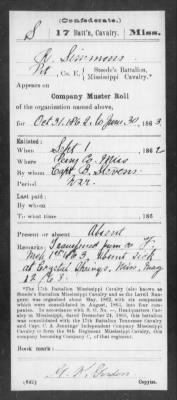 (Confederate.)
S 17 Batt'n, Cavalry. Miss.
R. Simmons
Pvt, Co. E, Steede's Battalion, Mississippi Cavalry.*
Appears on
Company Muster Roll
of the organization named above,
for Oct 31, 1862, to June 30, 1863.
Enlisted:
When Sept 1, 1862
Where Perry Co. Miss
By whom Capt. B. Stevens
Period War
Last paid:
By whom
To what time , 186
Present or absent Absent
Remarks: Transferred from Co. F.
May 1st 63, absent sick
at Crystal Springs, Miss, May
12, 63
*The 17th Battalion, Mississippi Cavalry (also known as
Steede's Battalion Mississippi Cavalry and as the
was organized about May, 1862, with six companies
which were consolidated in August, 1864, into four com-
panies. In accordance with S. O. No. —, Headquarters Cav-
alry in Mississippi, dated December 24, 1864, this battalion
was consolidated with the 17th Battalion Tennessee Cavalry
and Capt. C. A. Jennings' Independent Company Mississippi
Cavalry to form the 9th Regiment Mississippi Cavalry, this
company becoming Company C, of that regiment.
Book mark:
(642) Copyist.